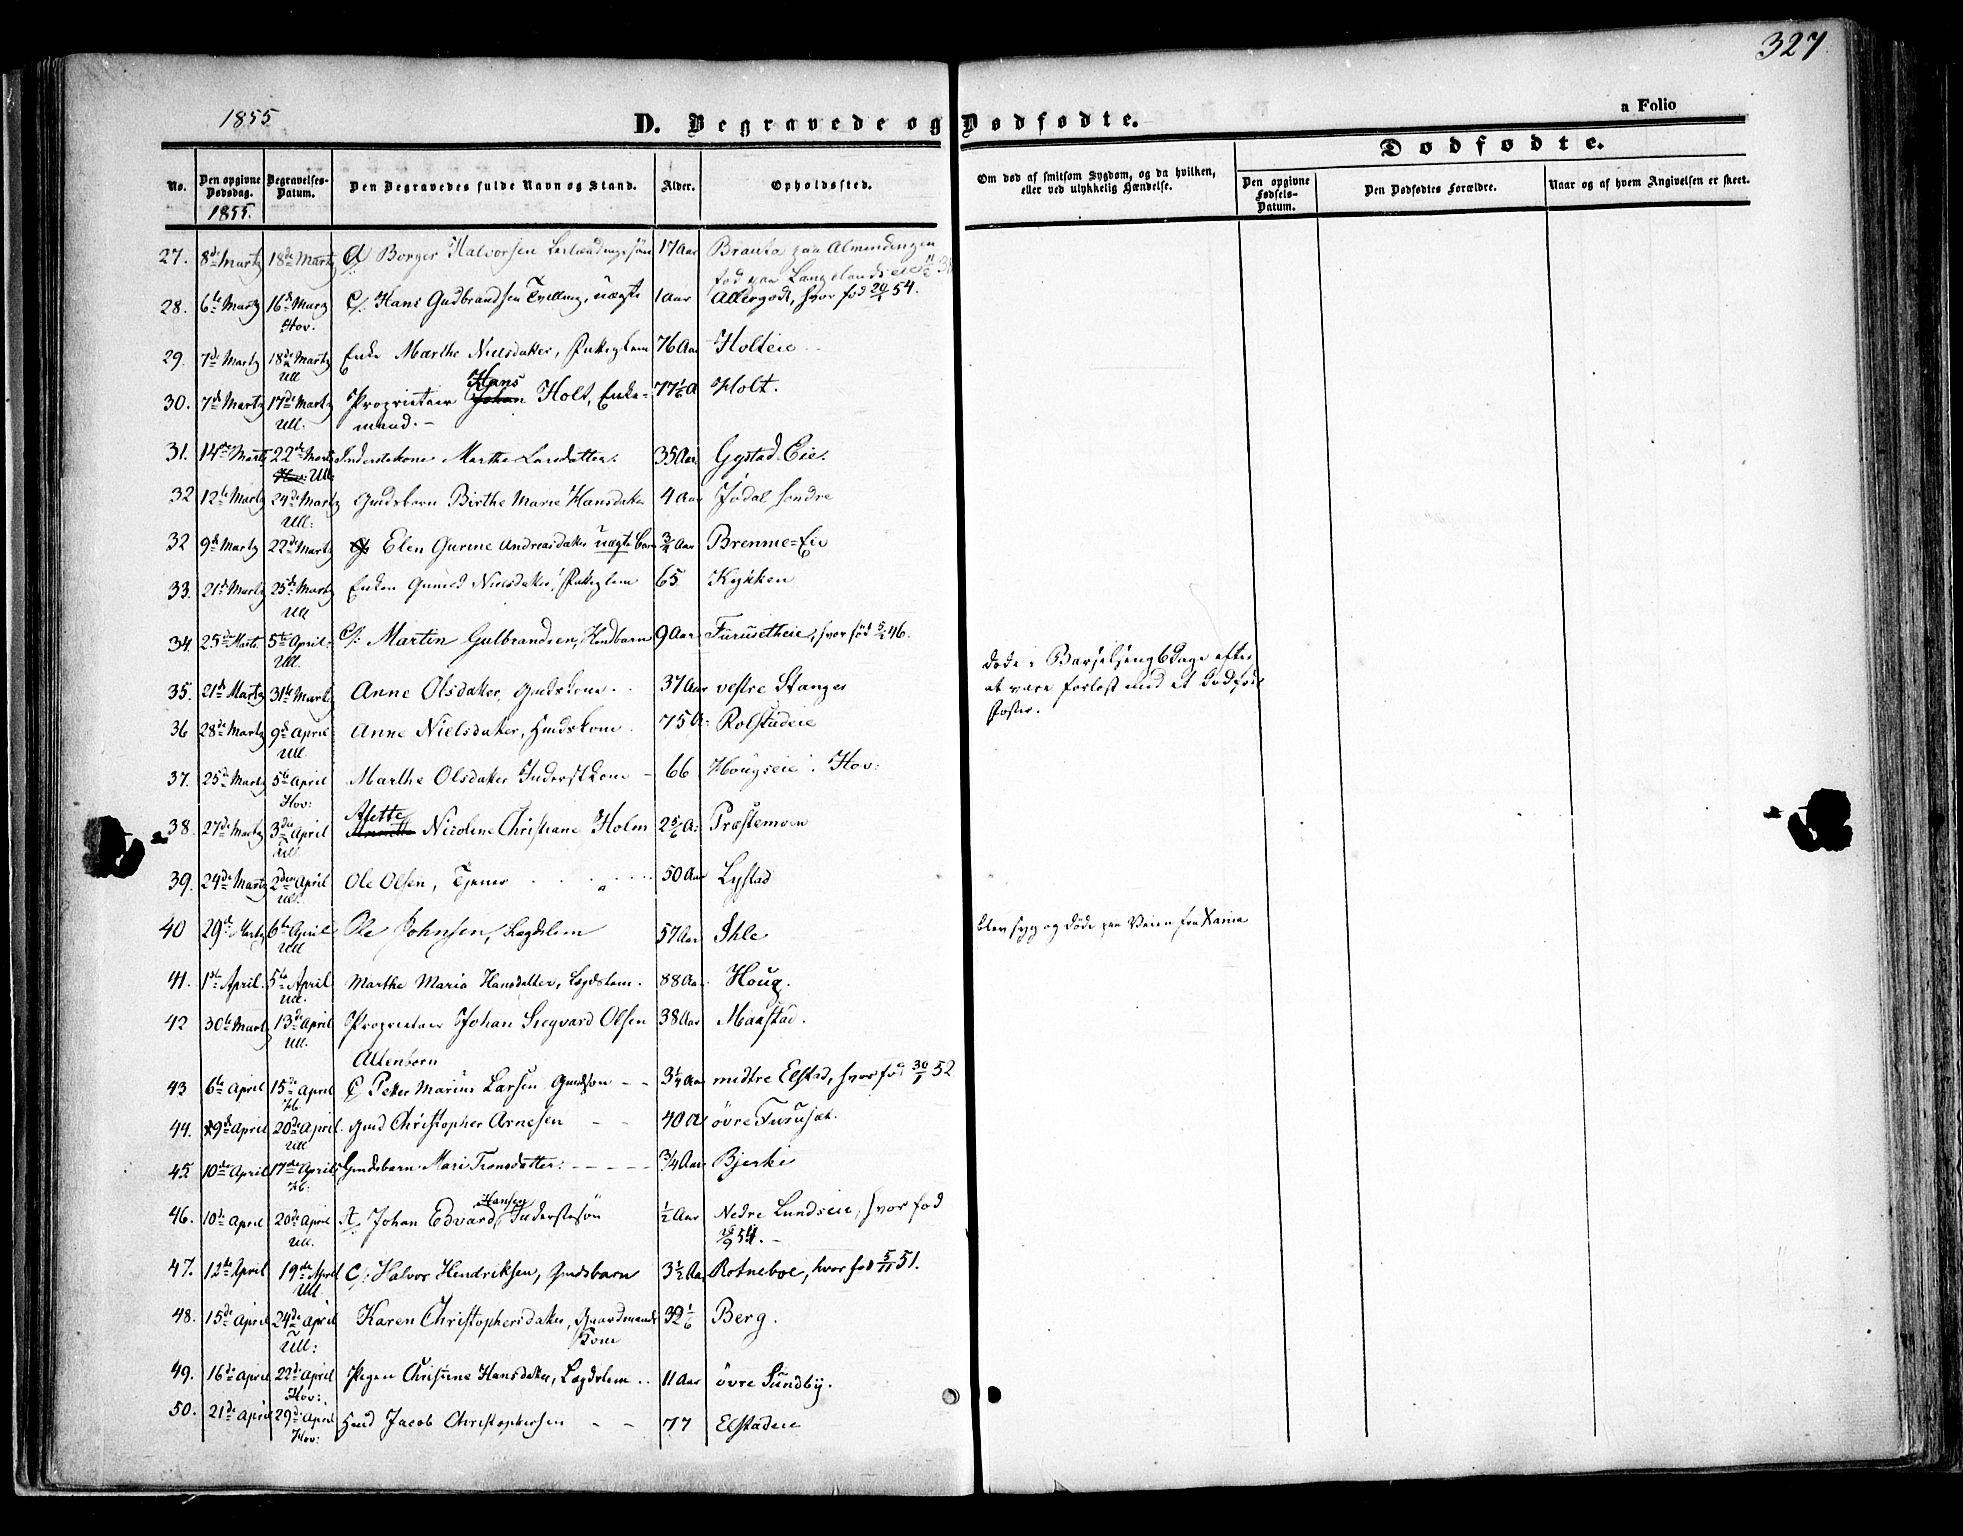 327
a Folio
1855
D. Begravede og Dødfødte.
Dødfødte.
No.
Den opgivne Dødsdag.
1855.
Begravelses-Datum.
Den Begravedes fulde Navn og Stand.
Alder.
Opholdssted.
Om død af smitsom Sygdom, og da hvilken, eller ved ulykkelig Hændelse.
Den opgivne Fødsels-Datum.
Den Dødfødtes Forældre.
Naar og af hvem Angivelsen er skeet.
27. 8de Martz 18de Martz Borger Halvorsen 17 Aar Branta paa Almendingen
fød paa Langelandseie
28. 6te Martz 16de Martz C/: Hans Gudbrandsen Tvilling, uægte 1 Aar Allergodt, hvor fød 54.
Hov.
29. 7de Martz 18de Martz Enke Marthe Nielsdatter, 76 Aar Holteie
Ull
30. 7de Martz 17de Martz Proprietair Hans Holt, Enke- 77 1/6 A Holt.
Ull. mand. -
31. 14de Martz 22de Martz Inderstekone Marthe Larsdatter. 35 Aar Gystad Eie.
Ull.
32 12te Martz 24de Martz Gmdsbarn Birthe Marie Hansdatter 4 Aar Jødal søndre
Ull:
32 9de Martz 22de Martz Elen Gurine Andreasdatter uægte Barn 3/4 Aar Brenme=Eie
33. 21de Martz 25de Martz Enken Gunild Nielsdatter, 65 Kykken
Ull
34 25de Martz 5te April C/: Martin Gulbrandsen, 9 Aar Furusetheie, hvor fød 46.
Ull.
35. 21de Martz 31te Martz Anne Olsdatter, Gmdskone 37 Aar vestre Stanger
døde i Barselseng 6 Dage efter
at være forløst med et dødfødt
Foster.
36 28de Martz 9de April Anne Nielsdatter, Hmdskone 75 A: Rolstadeie
Ull
37. 25de Martz 5te April Marthe Olsdatter Inderstkone - 66 Hougseie. Hov:
Hov:
38. 27de Martz 3die April Alette Nicoline Christiane Holm 2 5/6 A: Præstemoen
Ull
39. 24de Martz 2den April Ole Olsen, Tjener 50 Aar Lystad
Ull.
40 29de Martz 6te April Ole Johnsen, Lægdslem 57 Aar Ihle
Ull
blev syg og døde paa Veien fra Xania
41. 1ste April. 5te April Marthe Maria Hansdatter, Lægdslem. 88 Aar. Houg.
Ull.
42 30te Martz 13de April Proprietair Johan Siegvard Olsen 38 Aar Maastad.
Ull. Altenborn
43 6te April 15de April C Peter Marius Larsen Gmdsøn - - 3 1/4 Aar midtre Elstad, hvor fød 52
44. 9de April 20de April. Gmd Christopher Arnesen - - 40 A øvre Furuset.
Ull
45 10de April 17de April Gmdsbarn Mari Tronsdatter. - - - - 3/4 Aar Bjerke
46. 10de April 20de April Johan Edvard Hansen, Inderstesøn 1/2 Aar Nedre Lundseie, hvor fød
Ull. 54. -
47. 12te April 19de April C/: Halvor Hendriksen, Gmdsbarn 3 1/2 Aar Rotneboe, hvor fød 5/11 51.
Ull
48. 15de April 24de April Karen Christophersdatter, Gaardmands 32 1/6 Berg.
Ull: Kone
49. 16de April 22de April Pigen Christine Hansdatter, Lægdslem .. 11 Aar øvre Sundby.
Hov:
50. 21de April 29de April Hmd Jacob Christophersen - - 77 Elstadeie
Hov: